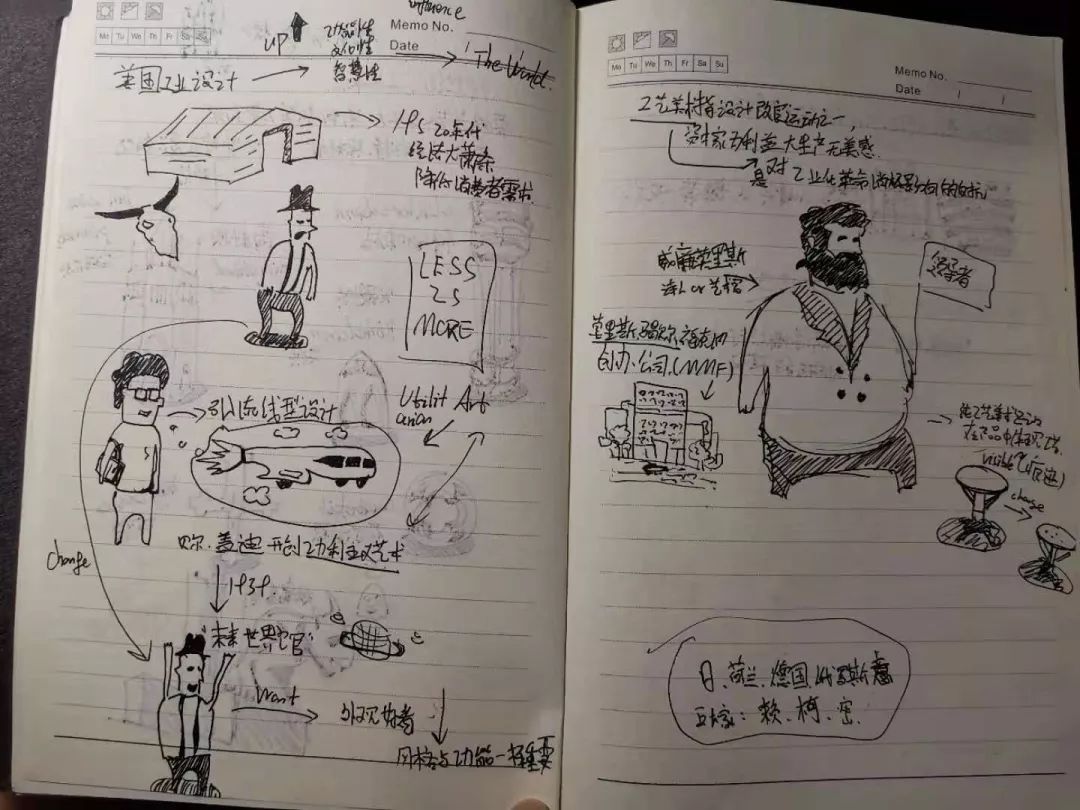 influence
Memo No.
Date
Mo Tu We Th Fr Sa Su
UP
功能性
文化性
智慧性
The World.
美国工业设计
20年代
经济大萧条
降低消费者需求
LESS
IS
MORE
引入流线型设计
Utilit Art
arian
贝尔·盖迪 开创功利主义艺术
change
1939.
"未来世界馆"
Want
外观如者
风格与功能一样重要
Mo Tu We Th Fr Sa Su
Memo No.
Date / /
工艺美术指设计改良运动之一,
资本家为利益大生产无美感.
是对工业化革命
威廉莫里斯
诗人 or 艺术
莫里斯 福克纳
创办公司.(MMF)
领导者
在产品中体现
visible
change
日、荷兰、德国、俄罗斯
五大家: 赖、柯、密.